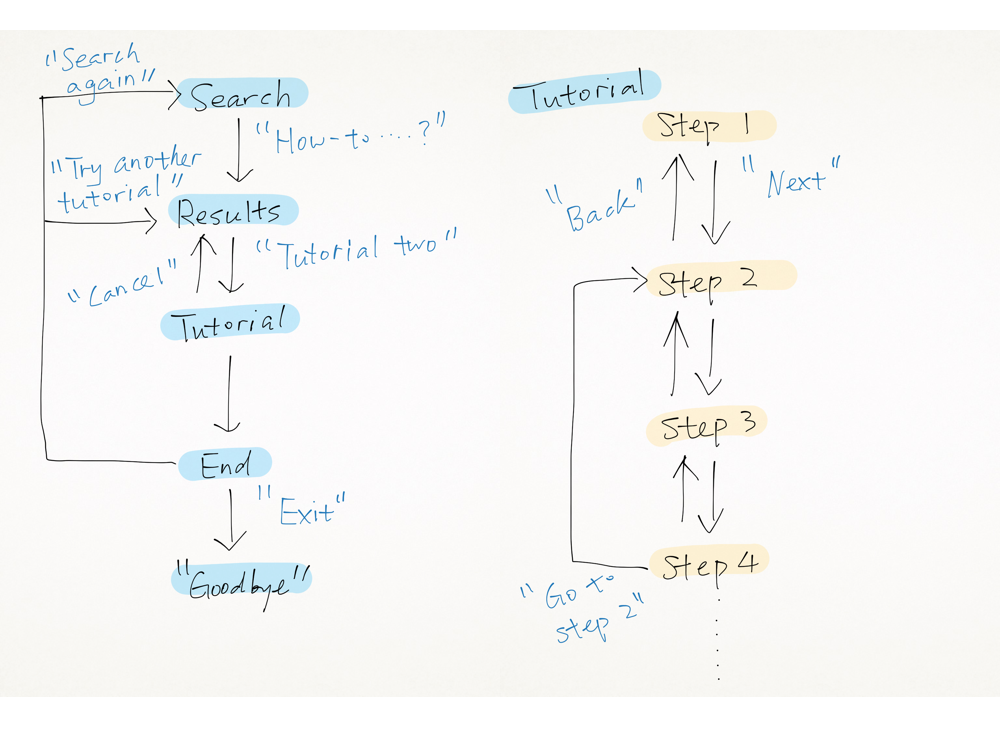 "Search
again"
Search
"How-to ....?"
"Try another
tutorial"
Results
"Cancel"
"Tutorial two"
Tutorial
End
"Exit"
"Goodbye"
Tutorial
Step 1
"Back"
"Next"
Step 2
Step 3
Step 4
"Go to
step 2"